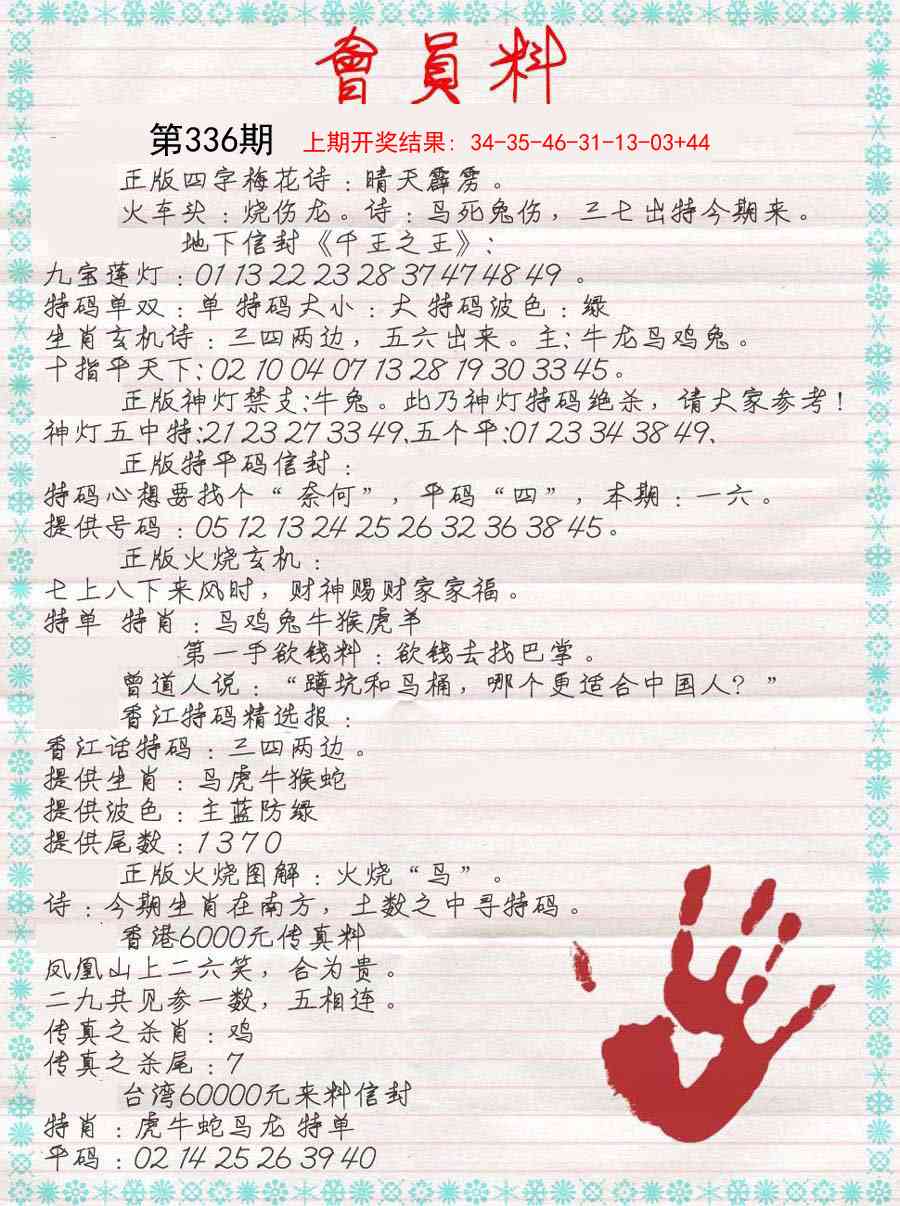 會員料
第336期 上期开奖结果: 34-35-46-31-13-03+44
正版四字梅花诗：晴天霹雳。
火车头：烧伤龙。诗：马死兔伤，三七出特今期来。
地下信封《千王之王》：
九宝莲灯：01 13 22 23 28 37 47 48 49 。
特码单双：单 特码大小：大 特码波色：绿
生肖玄机诗：三四两边，五六出来。主：牛龙马鸡兔。
十指平天下：02 10 04 07 13 28 19 30 33 45。
正版神灯禁支：牛兔。此乃神灯特码绝杀，请大家参考！
神灯五中特：21 23 27 33 49、五个平：01 23 34 38 49、
正版特平码信封：
特码心想要找个“奈何”，平码“四”，本期：一六。
提供号码：05 12 13 24 25 26 32 36 38 45。
正版火烧玄机：
七上八下来风时，财神赐财家家福。
特单 特肖：马鸡兔牛猴虎羊
第一手欲钱料：欲钱去找巴掌。
曾道人说：“蹲坑和马桶，哪个更适合中国人？”
香江特码精选报：
香江话特码：三四两边。
提供生肖：马虎牛猴蛇
提供波色：主蓝防绿
提供尾数：1 3 7 0
正版火烧图解：火烧“马”。
诗：今期生肖在南方，土数之中寻特码。
香港6000元传真料
凤凰山上二六笑，合为贵。
二九共见参一数，五相连。
传真之杀肖：鸡
传真之杀尾：7
台湾60000元来料信封
特肖：虎牛蛇马龙 特单
平码：02 14 25 26 39 40